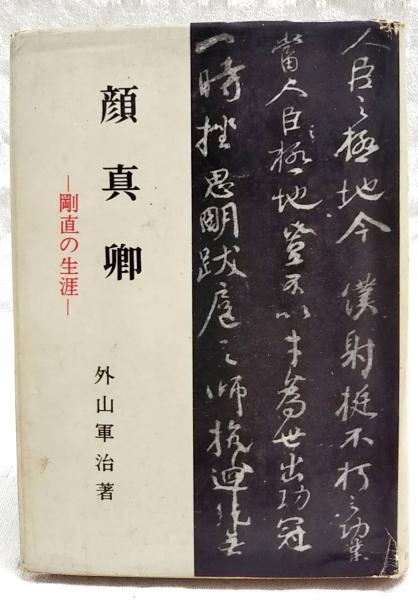 人臣之極地今僕射挺不朽之功業
當人臣之極地豈不以才為世出功冠
一時挫思明跋扈之師抗迴紇無
顔真卿
―剛直の生涯―
外山軍治著